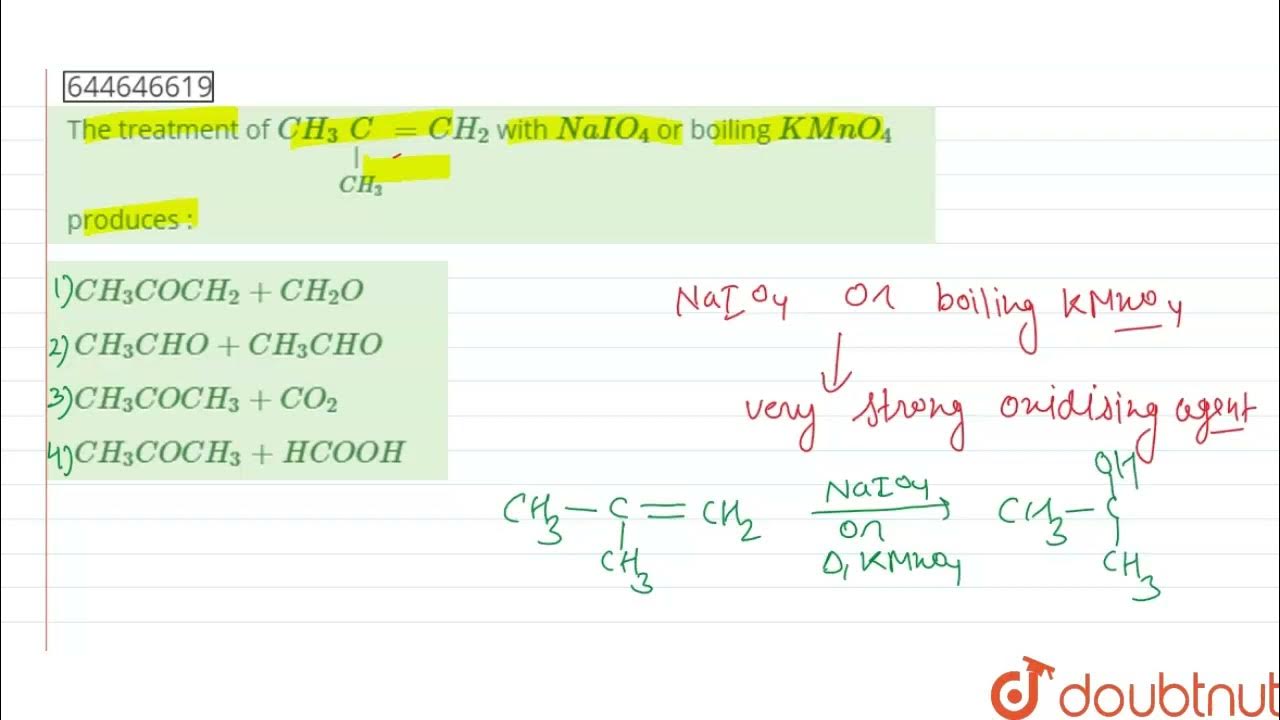 644646619
The treatment of CH₃ C = CH₂ with NaIO₄ or boiling KMnO₄
|
CH₃
produces :
1) CH₃COCH₂ + CH₂O
2) CH₃CHO + CH₃CHO
3) CH₃COCH₃ + CO₂
4) CH₃COCH₃ + HCOOH
NaIO₄ or boiling KMnO₄
↓
very strong oxidising agent
OH
CH₃ — C = CH₂ NaIO₄ → CH₃ — C
or
CH₃ Δ, KMnO₄ CH₃
doubtnut